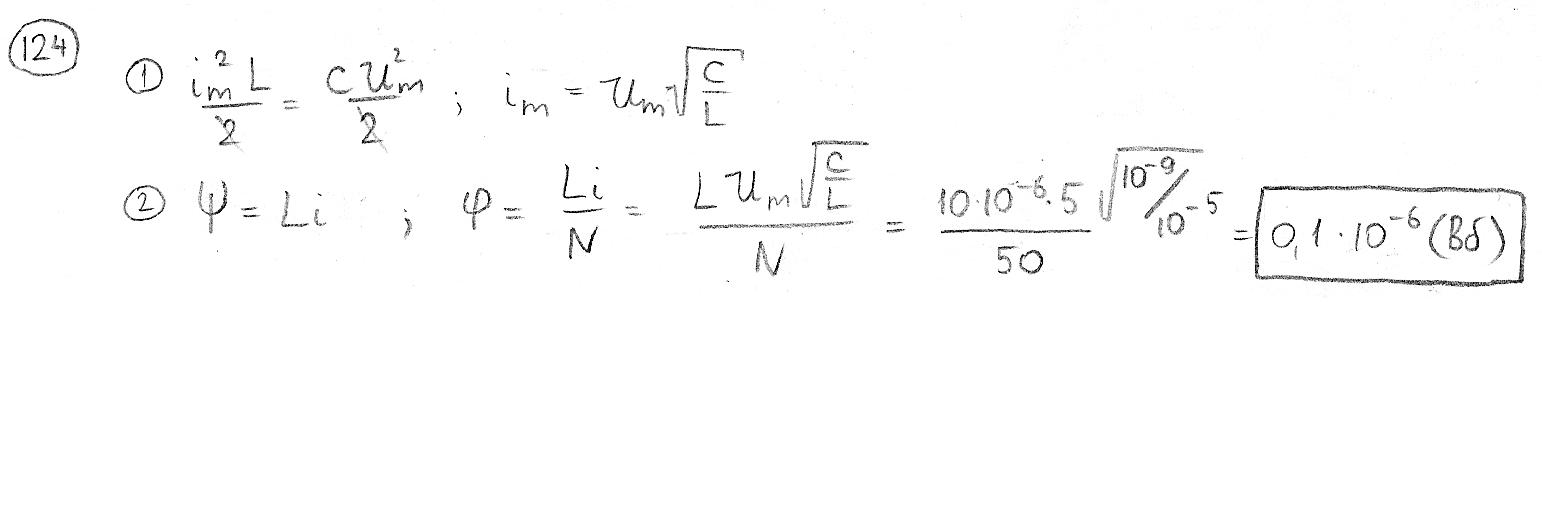 124
① i_m² L / 2 = C U_m² / 2 ; i_m = U_m √(C/L)
② Ψ = Li ; φ = Li/N = L U_m √(C/L) / N = 10·10⁻⁶·5 √(10⁻⁹/10⁻⁵) / 50 = 0,1·10⁻⁶ (Вб)